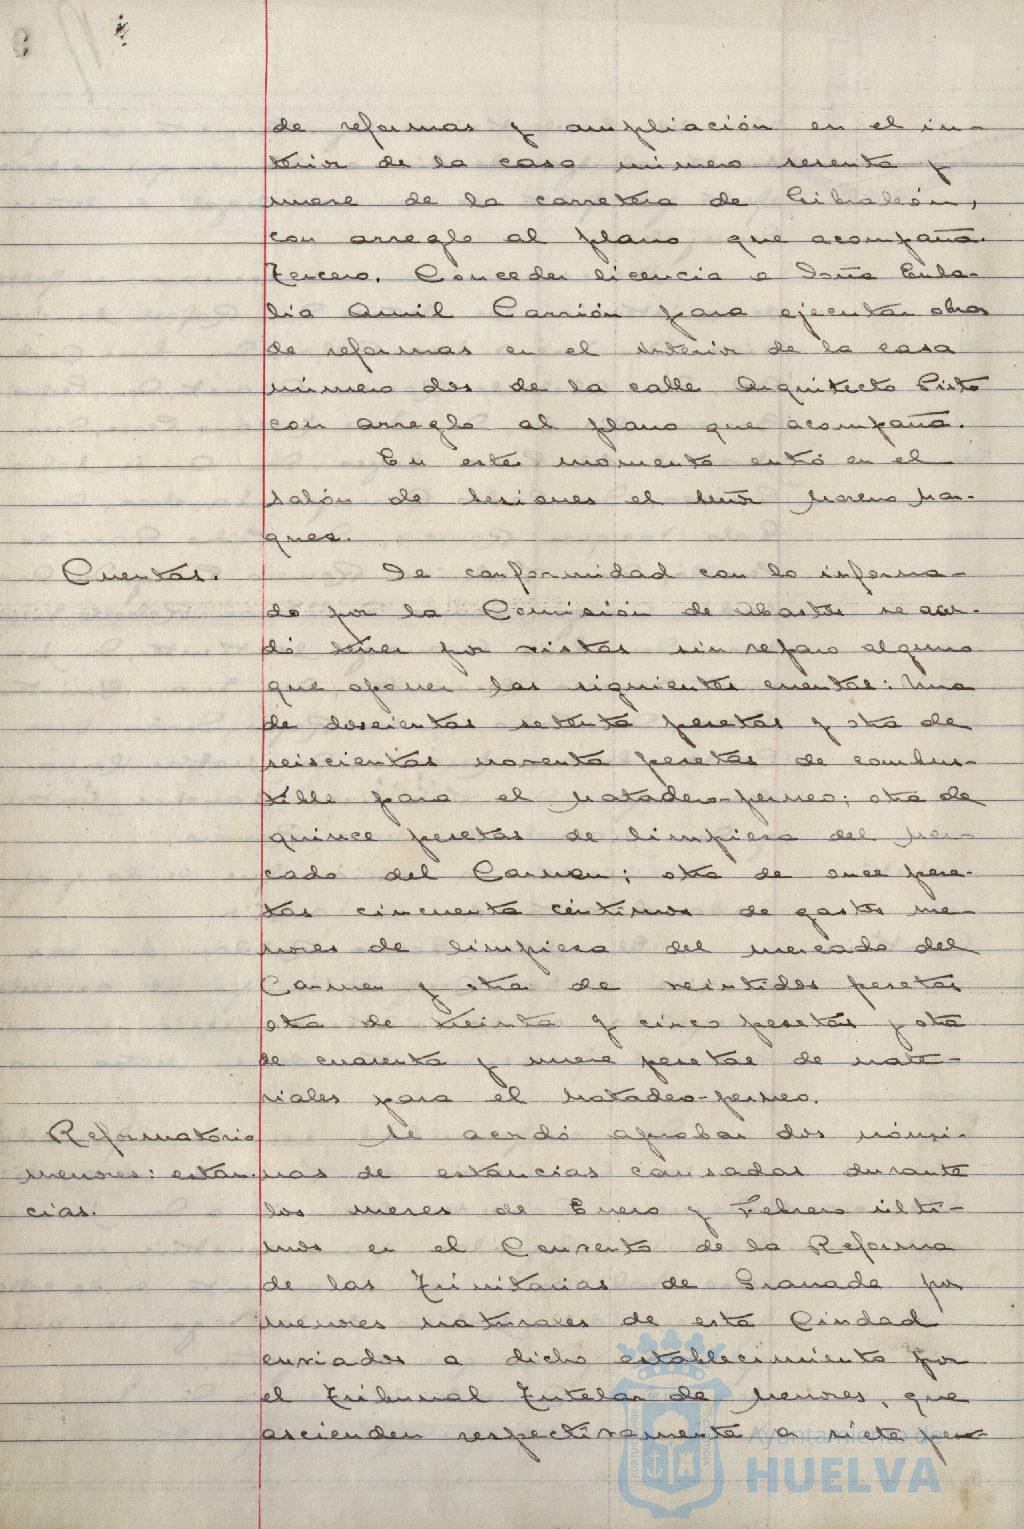 de reformas y ampliación en el in-
terior de la casa número sesenta y
nueve de la carretera de Gibraleón,
con arreglo al plano que acompaña.
Tercero. Conceder licencia a Doña Eula-
lia Amil Carrión para ejecutar obras
de reformas en el interior de la casa
número dos de la calle Arquitecto Pinto
con arreglo al plano que acompaña.
En este momento entró en el
salón de sesiones el señor Moreno Mar-
ques.
Cuentas.
De conformidad con lo informa-
do por la Comisión de Abastos se acor-
dó tener por vistas sin reparo alguno
que oponer las siguientes cuentas: Una
de doscientas setenta pesetas y otra de
seiscientas noventa pesetas de combus-
tible para el matadero-perneo; otra de
quince pesetas de limpieza del mer-
cado del Carmen; otra de once pese-
tas cincuenta céntimos de gastos me-
nores de limpieza del mercado del
Carmen y otra de veintidos pesetas
otra de treinta y cinco pesetas y otra
de cuarenta y nueve pesetas de mate-
riales para el matadero-perneo.
Reformatorio
menores: estan-
cias.
Se acordó aprobar dos nómi-
nas de estancias causadas durante
los meses de Enero y Febrero últi-
mos en el Convento de la Reforma
de las Trinitarias de Granada por
menores naturales de esta Ciudad
enviados a dicho establecimiento por
el Tribunal Tutelar de Menores, que
ascienden respectivamente a siete pese-
Ayuntamiento de
HUELVA